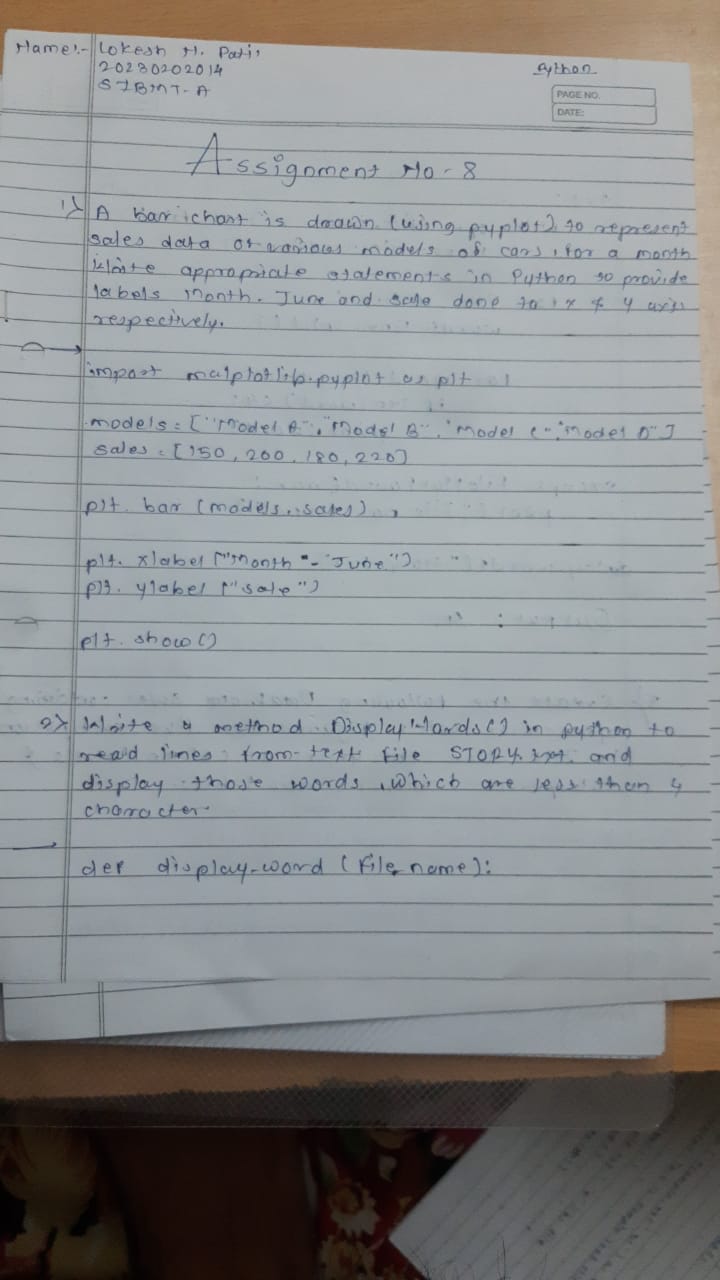 Name:- Lokesh H. Patil
20230202014
SIBMT-A
Python
PAGE NO.
DATE:
Assignment No-8
1) A bar chart is drawn (using pyplot) to represent
sales data of various models of cars, for a month
Write appropriate statements in Python to provide
labels month. June and sale done to x & y axis
respectively.
import matplotlib.pyplot as plt
models = ["Model A", "Model B", "Model C", "Model D"]
sales = [150, 200, 180, 220]
plt. bar (models, sales)
plt. xlabel ("Month - June")
plt. ylabel ("sale")
plt. show ()
2) Write a method DisplayWords() in python to
read lines from text file STORY.txt. and
display those words, which are less than 4
character.
def display-word (file name):